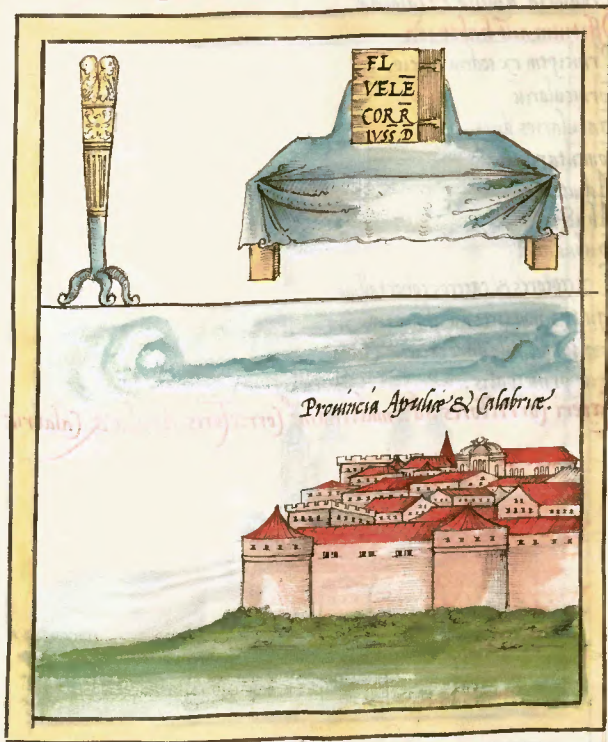 FL
VELĒ
CORR̄
IVSS D̄
Prouincia Apuliæ & Calabriæ.